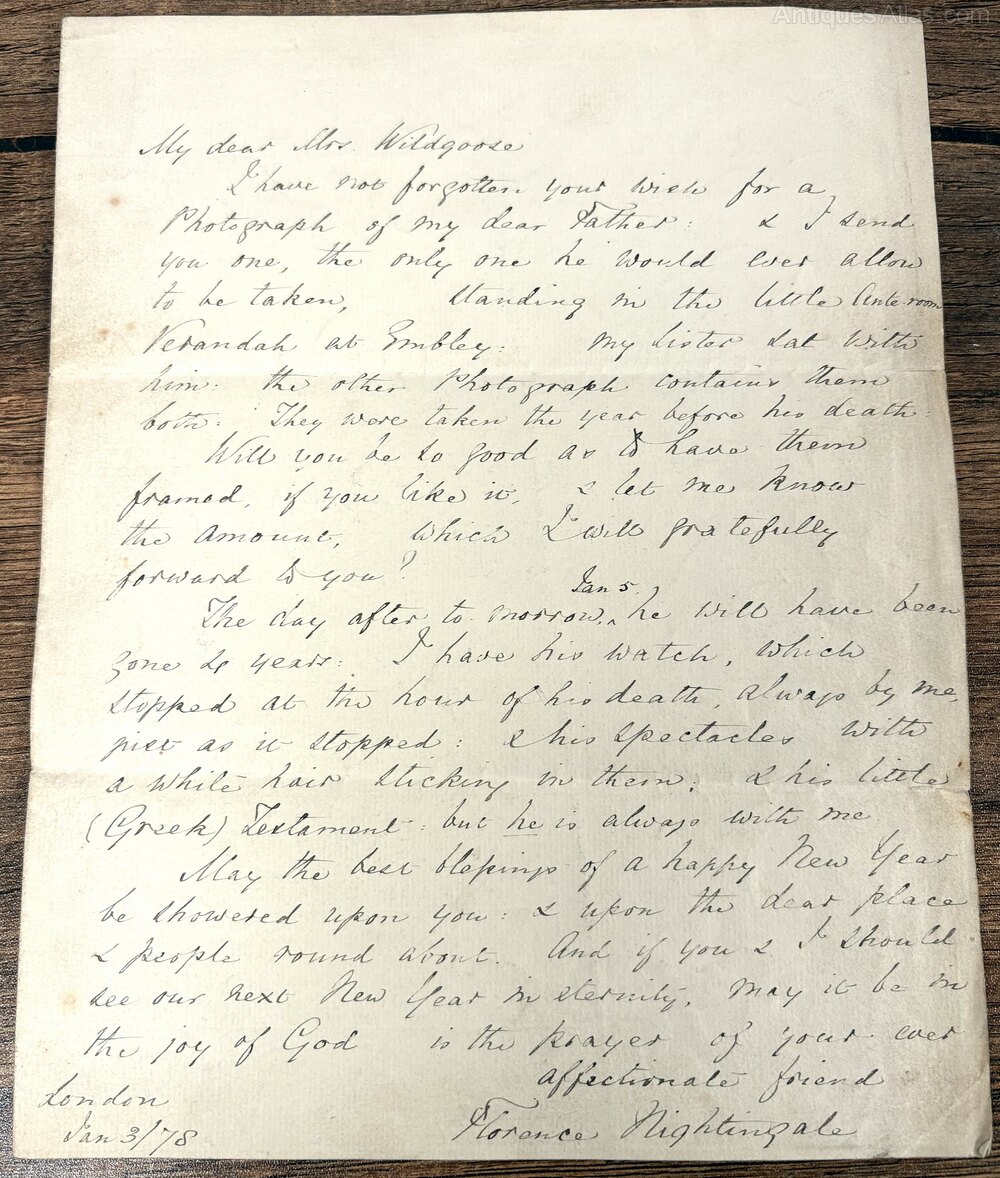 AntiquesAtlas.com
My dear Mrs. Wildgoose
I have not forgotten your wish for a
Photograph of my dear Father: & I send
you one, the only one he would ever allow
to be taken, standing in the little Ante-room
Verandah at Embley: my sister sat with
him: the other Photograph contains them
both: They were taken the year before his death:
Will you be so good as to have them
framed, if you like it, & let me know
the amount, which I will gratefully
forward to you?
The day after to-morrow, ^ Jan 5, he will have been
gone 4 years: I have his watch, which
stopped at the hour of his death, always by me,
just as it stopped: & his spectacles with
a white hair sticking in them: & his little
(Greek) Testament: but he is always with me
May the best blessings of a happy New Year
be showered upon you: & upon the dear place
& people round about. And if you & I should
see our next New Year in eternity, may it be in
the joy of God is the prayer of your ever
affectionate friend
Florence Nightingale
London
Jan 3/78